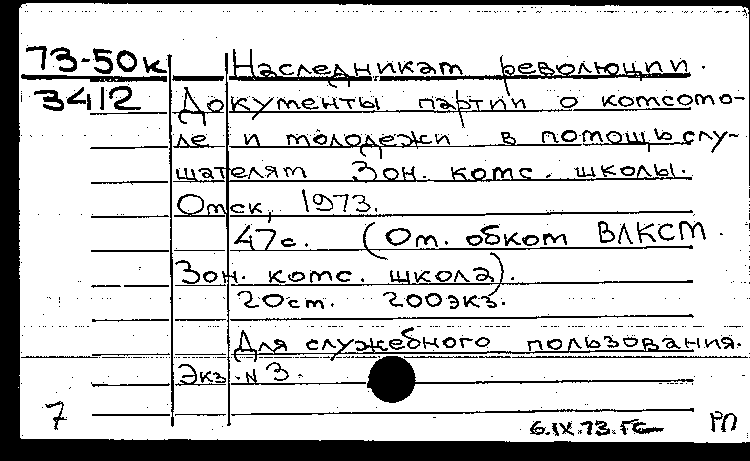 73-50к Наследникам революции.
3412 Документы партии о комсомо-
ле и молодежи в помощь слу-
шателям Зон. комс. школы.
Омск, 1973.
47с. (Ом. обком ВЛКСМ.
Зон. комс. школа).
20см. 200экз.
Для служебного пользования.
Экз. № 3.
7 6.IX.73.ГС РП